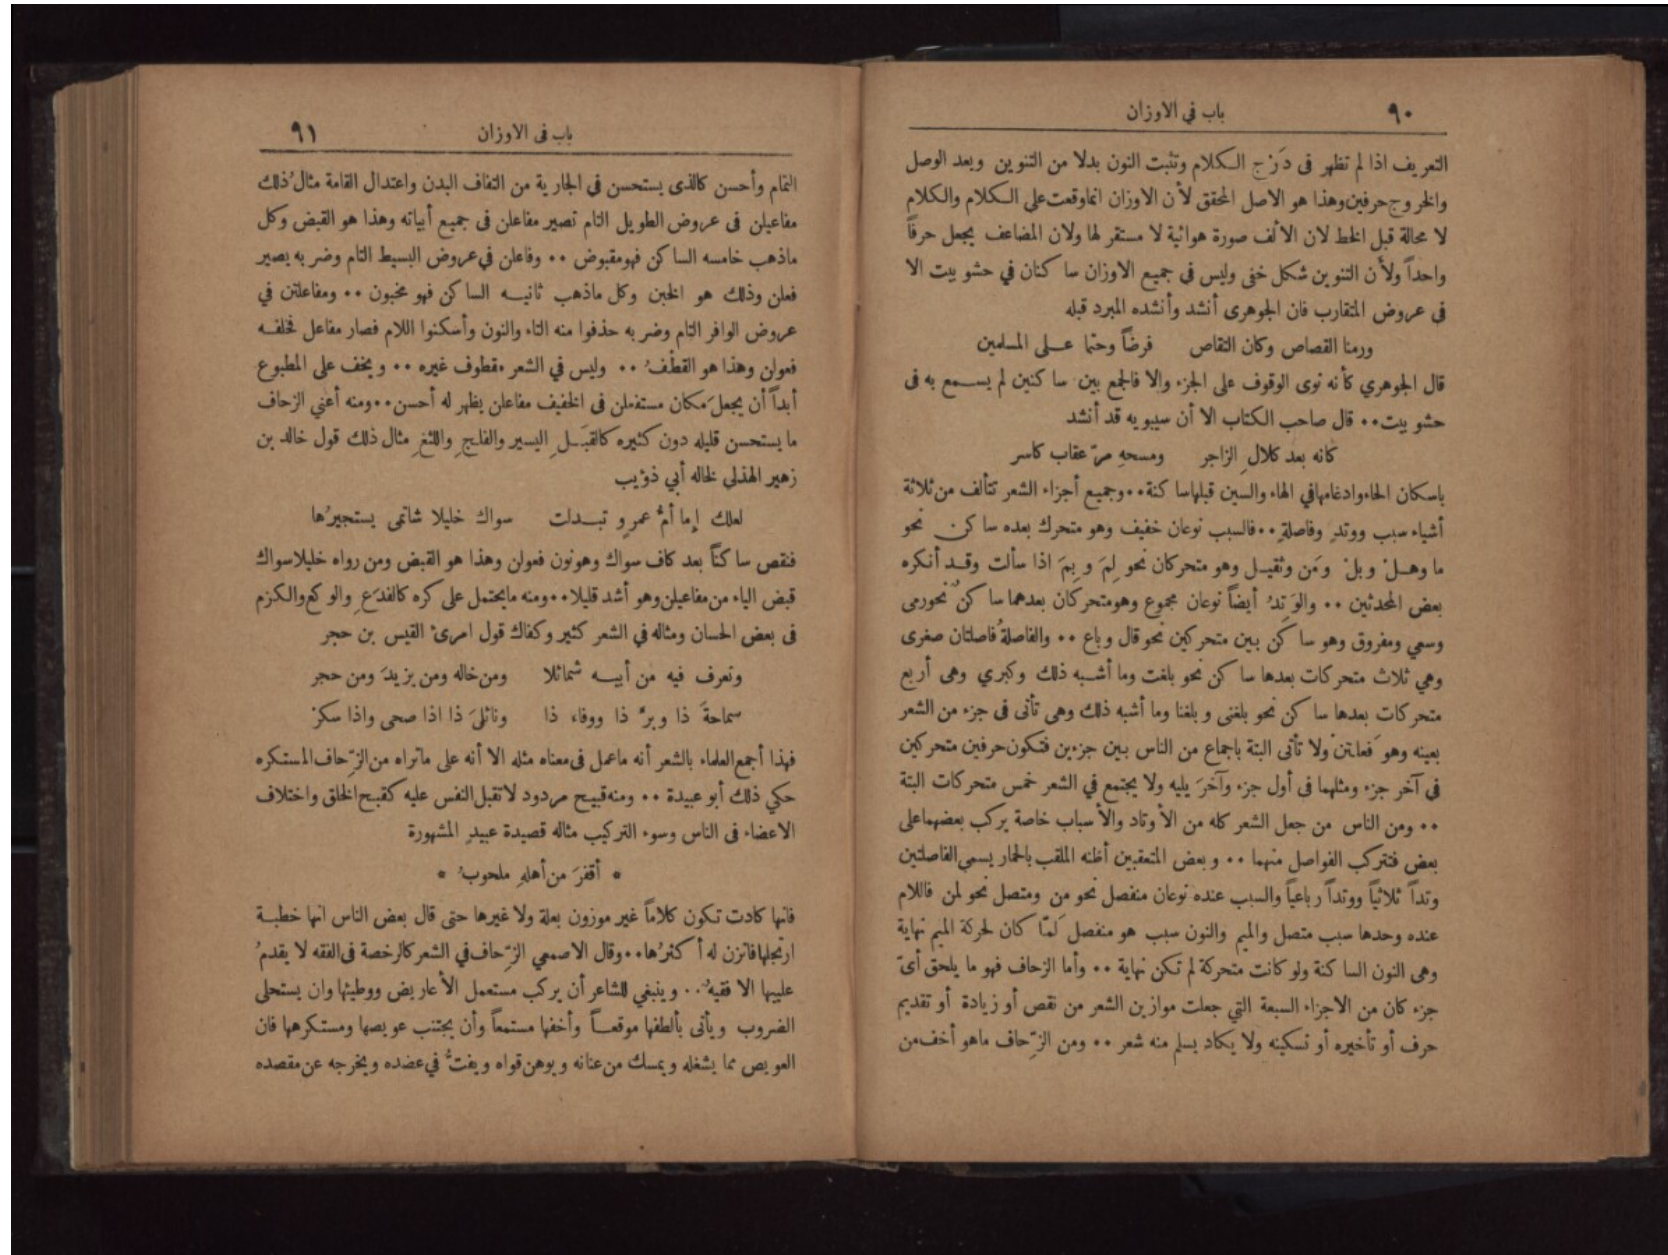 ٩٠ باب في الاوزان
التعريف اذا لم تظهر فى دَرْج الكلام وتثبت النون بدلا من التنوين وبعد الوصل
والخروج حرفين وهذا هو الاصل المحقق لأن الاوزان انما وقعت على الكلام والكلام
لا محالة قبل الخط لان الألف صورة هوائية لا مستقر لها ولان المضاعف يجعل حرفاً
واحداً ولأن التنوين شكل خفى وليس فى جميع الاوزان ساكنان في حشو بيت الا
فى عروض المتقارب فان الجوهرى أنشد وأنشده المبرد قبله
ورمنا القصاص وكان التقاص فرضاً وحتما على المسلمين
قال الجوهري كأنه نوى الوقوف على الجزء والا فالجمع بين ساكنين لم يسمع به فى
حشو بيت ٠٠ قال صاحب الكتاب الا أن سيبويه قد أنشد
كانه بعد كلالِ الزاجر ومسحهِ مرّ عقاب كاسر
باسكان الحاء وادغامها في الهاء والسين قبلها ساكنة ٠٠ وجميع أجزاء الشعر تتألف من ثلاثة
أشياء سبب ووتدٍ وفاصلةٍ ٠٠ فالسبب نوعان خفيف وهو متحرك بعده ساكن نحو
ما وهلْ وبلْ ومَن وثقيل وهو متحركان نحو لِمَ وبِمَ اذا سألت وقد أنكره
بعض المحدثين ٠٠ والوَتِدُ أيضاً نوعان مجموع وهو متحركان بعدهما ساكنٌ نحو رمى
وسمي ومفروق وهو ساكن بين متحركين نحو قال وباع ٠٠ والفاصلةُ فاصلتان صغرى
وهي ثلاث متحركات بعدها ساكن نحو بلغت وما أشبه ذلك وكبري وهى أربع
متحركات بعدها ساكن نحو بلغنى وبلغنا وما أشبه ذلك وهى تأتى فى جزء من الشعر
بعينه وهو فَعِلَتن ولا تأتى البتة باجماع من الناس بين جزءين فتكون حرفين متحركين
فى آخر جزء ومثلهما فى أول جزء وآخرَ يليه ولا يجتمع في الشعر خمس متحركات البتة
٠٠ ومن الناس من جعل الشعر كله من الأوتاد والأسباب خاصة يركب بعضهما على
بعض فتتركب الفواصل منهما ٠٠ وبعض المتعقبين أظنه الملقب بالحمار يسمى الفاصلتين
وتداً ثلاثياً ووتداً رباعياً والسبب عنده نوعان منفصل نحو من ومتصل نحو لمن فاللام
عنده وحدها سبب متصل والميم والنون سبب هو منفصل لَمّا كان لحركة الميم نهاية
وهى النون الساكنة ولو كانت متحركة لم تكن نهاية ٠٠ وأما الزحاف فهو ما يلحق أىّ
جزء كان من الاجزاء السبعة التي جعلت موازين الشعر من نقص أو زيادة أو تقديم
حرف أو تأخيره أو تسكينه ولا يكاد يسلم منه شعر ٠٠ ومن الزّحاف ماهو أخف من
باب فى الاوزان ٩١
التمام وأحسن كالذى يستحسن في الجارية من التفاف البدن واعتدال القامة مثال ذلك
مفاعيلن فى عروض الطويل التام تصير مفاعلن فى جميع أبياته وهذا هو القبض وكل
ماذهب خامسه الساكن فهو مقبوض ٠٠ وفاعلن في عروض البسيط التام وضربه يصير
فعلن وذلك هو الخبن وكل ماذهب ثانيه الساكن فهو مخبون ٠٠ ومفاعلتن في
عروض الوافر التام وضربه حذفوا منه التاء والنون وأسكنوا اللام فصار مفاعل فخلفه
فعولن وهذا هو القطْفُ ٠٠ وليس في الشعر مقطوف غيره ٠٠ ويخف على المطبوع
أبداً أن يجعل مكان مستفعلن فى الخفيف مفاعلن يظهر له أحسن ٠٠ ومنه أعني الزحاف
ما يستحسن قليله دون كثيره كالقبَلِ اليسير والفلجِ واللثغِ مثال ذلك قول خالد بن
زهير الهذلي لخاله أبي ذؤيب
لعلك إما أمُّ عمرٍو تبدلت سواك خليلا شاتمى يستجيرُها
فنقص ساكناً بعد كاف سواك وهو نون فعولن وهذا هو القبض ومن رواه خليلا سواك
قبض الياء من مفاعيلن وهو أشد قليلا ٠٠ ومنه مايحتمل على كره كالفدَعِ والوكع والكزم
فى بعض الحسان ومثاله في الشعر كثير وكفاك قول امرئ القيس بن حجر
وتعرف فيه من أبيه شمائلا ومن خاله ومن يزيدَ ومن حجر
سماحةَ ذا وبرَّ ذا ووفاء ذا ونائلَ ذا اذا صحى واذا سكر
فهذا أجمع العلماء بالشعر أنه ماعمل فى معناه مثله الا أنه على ماتراه من الزّحاف المستكره
حكي ذلك أبو عبيدة ٠٠ ومنه قبيح مردود لاتقبل النفس عليه كقبح الخلق واختلاف
الاعضاء فى الناس وسوء التركيب مثاله قصيدة عبيدٍ المشهورة
* أقفرَ من أهلهِ ملحوبُ *
فانها كادت تكون كلاماً غير موزون بعلة ولا غيرها حتى قال بعض الناس انها خطبة
ارتجلها فاتزن له أكثرُها ٠٠ وقال الاصمعي الزّحاف في الشعر كالرخصة فى الفقه لا يقدمُ
عليها الا فقيهٌ ٠٠ وينبغي للشاعر أن يركب مستعمل الأعاريض ووطيئها وان يستحلى
الضروب ويأتى بألطفها موقعاً وأخفها مستمعاً وأن يجتنب عويصها ومستكرهها فان
العويص مما يشغله ويمسك من عنانه ويوهن قواه ويفتُّ في عضده ويخرجه عن مقصده